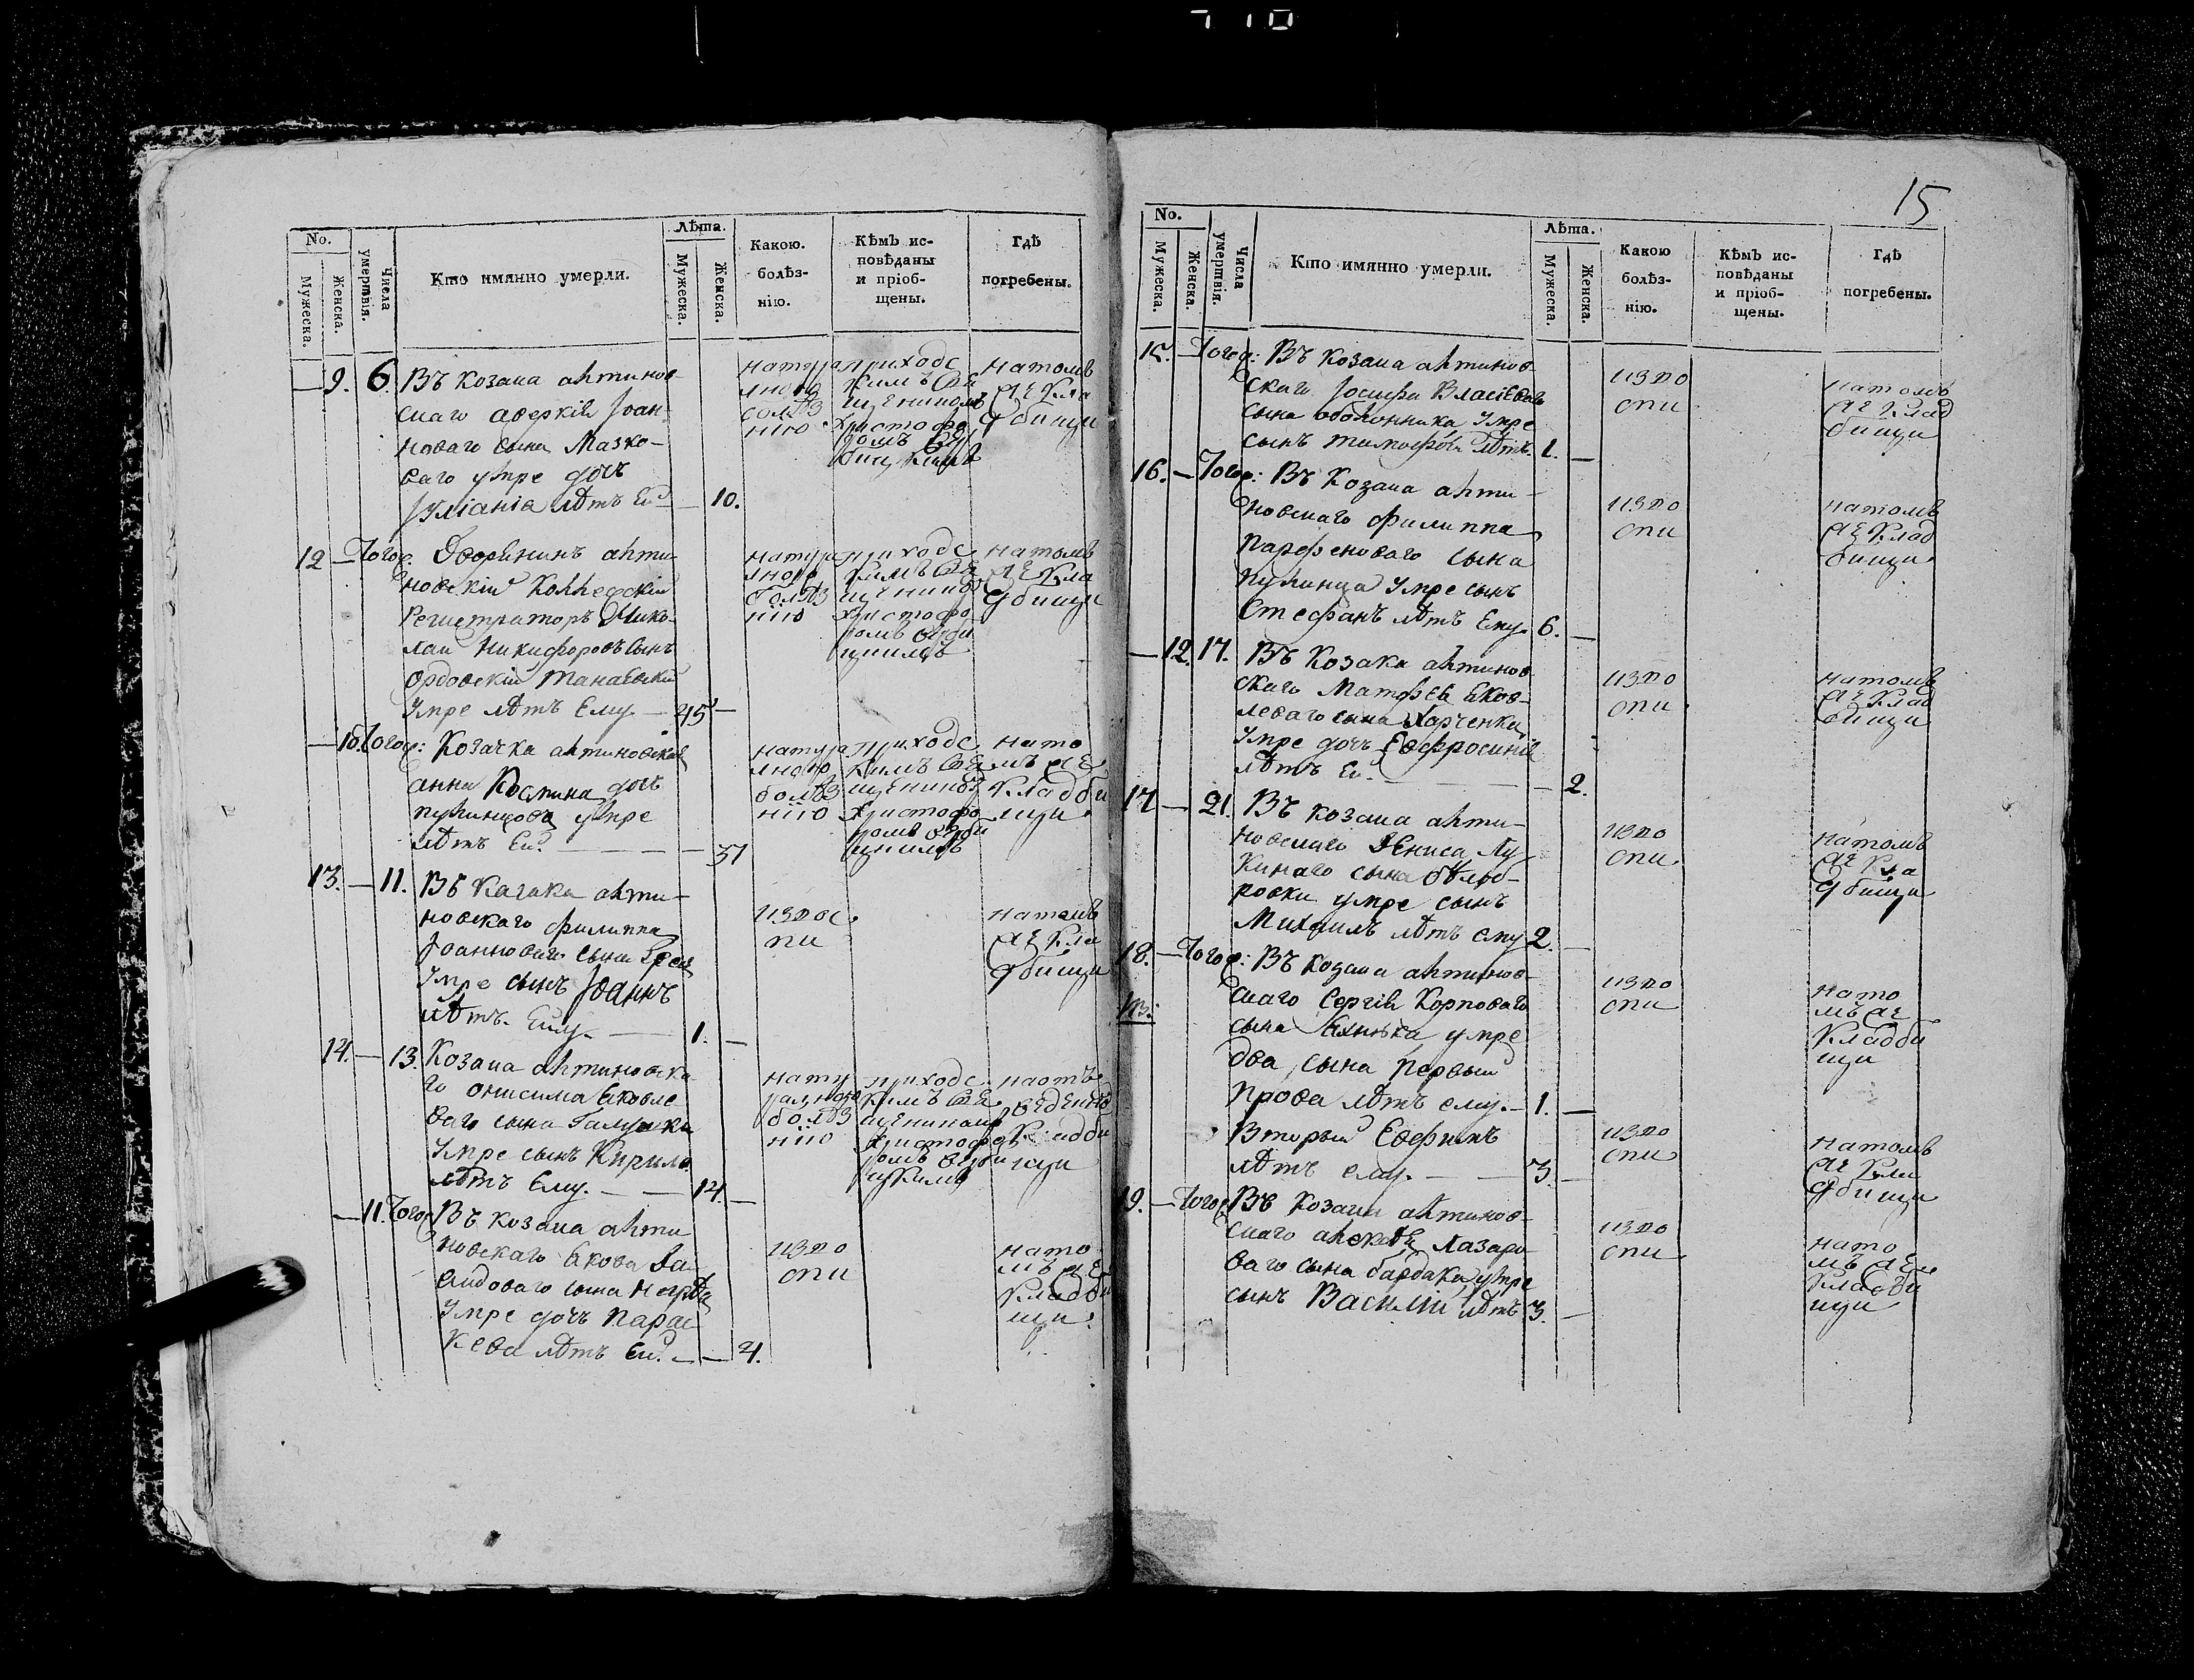 710
No.
Мужеска.
Женска.
Числа умертвія.
Кто имянно умерли.
Лѣта.
Мужеска.
Женска.
Какою. болѣз- нію.
Кѣмъ ис- повѣданы и пріоб- щены.
Гдѣ погребены.
— 9. 6. Въ Козака
скаго аверкія Іоан
новаго сына Мазко-
ваго умре дочь
Іуліанія лѣтъ Ей — 10.
натура
лною
болѣз
нію
приходс
кимъ свя
щенникомъ
Христофо
ромъ
на томъ
же кла
дбищи
12 — Тогож. Дворянинъ
новскій Коллежскій
Регистраторъ Нико
лай Никифоровъ сынъ
Ордовскій Танаевскій
Умре лѣтъ Ему — 45 —
натура
лною
болѣз
нію
приходс
кимъ свя
щенником
Христофо
ромъ
на томъ
же кла
дбищи
— 10. Тогож: Козачка
анна дочь
умре
лѣтъ Ей. — 37
натура
лною
болѣз
нію
приходс
кимъ свя
щенником
Христофо
ромъ
на то
мъ же
кладби
щи
13. — 11. Въ Казака
новскаго филиппа
Іоаннова сына
Умре сынъ Іоаннъ
лѣтъ. Ему. — 1. —
изъ ос
пи
на томъ
же кла
дбищи
14. — 13. Козака
го онисима Яковле
ваго сына Галушки
Умре сынъ Кирило
лѣтъ Ему. — 14. —
нату
ралною
болѣз
нію
приходс
кимъ свя
щенником
Христофо
ромъ
кладби
щи
— 11. Тогож Въ козака
новскаго Якова Да
видоваго сына
Умре дочь Парас
кева лѣтъ Ей. — 4.
изъ о
спи
на то
мъ же
кладби
щи.
15
No.
Мужеска.
Женска.
Числа умертвія.
Кто имянно умерли.
Лѣта.
Мужеска.
Женска.
Какою болѣз- нію.
Кѣмъ ис- повѣданы и пріоб- щены.
Гдѣ погребены.
15. — Тогож: Въ козака
скаго Іосифа Власіеваго
сына оболонника Умре
сынъ тимофѣй лѣтъ. 1. —
изъ о
спи
на томъ
же клад
бищи
16. — Тогож: Въ Козака
новскаго филиппа
Парфеноваго сына
Умре сынъ
Стефанъ лѣтъ Ему. 6. —
изъ о
спи
на томъ
же клад
бищи.
— 12. 17. Въ Козака
скаго Матфея Яков-
леваго сына Харченка
Умре дочь Евфросинія
лѣтъ Ей. — 2.
изъ о
спи.
на томъ
же клад
бищи
17 — 21. Въ козака
новскаго Дениса Лу
кинаго сына
умре сынъ
Михаилъ лѣтъ ему 2. —
изъ о
спи.
на томъ
же кла
дбищи
18. — Тогож: Въ козака
скаго Сергія Корповаго
сына умре
два сына первый
Прова лѣтъ ему. — 1. —
изъ о
спи
на то
мъ же
кладби
щи
Вторый Евфимъ
лѣтъ ему. — 3. —
изъ о
спи
на томъ
же кла
дбищи
19. — Тогож Въ козака
скаго Лазаре
ваго сына бардака умре
сынъ Василій лѣтъ 3. —
изъ о
спи.
на то
мъ же
кладби
щи